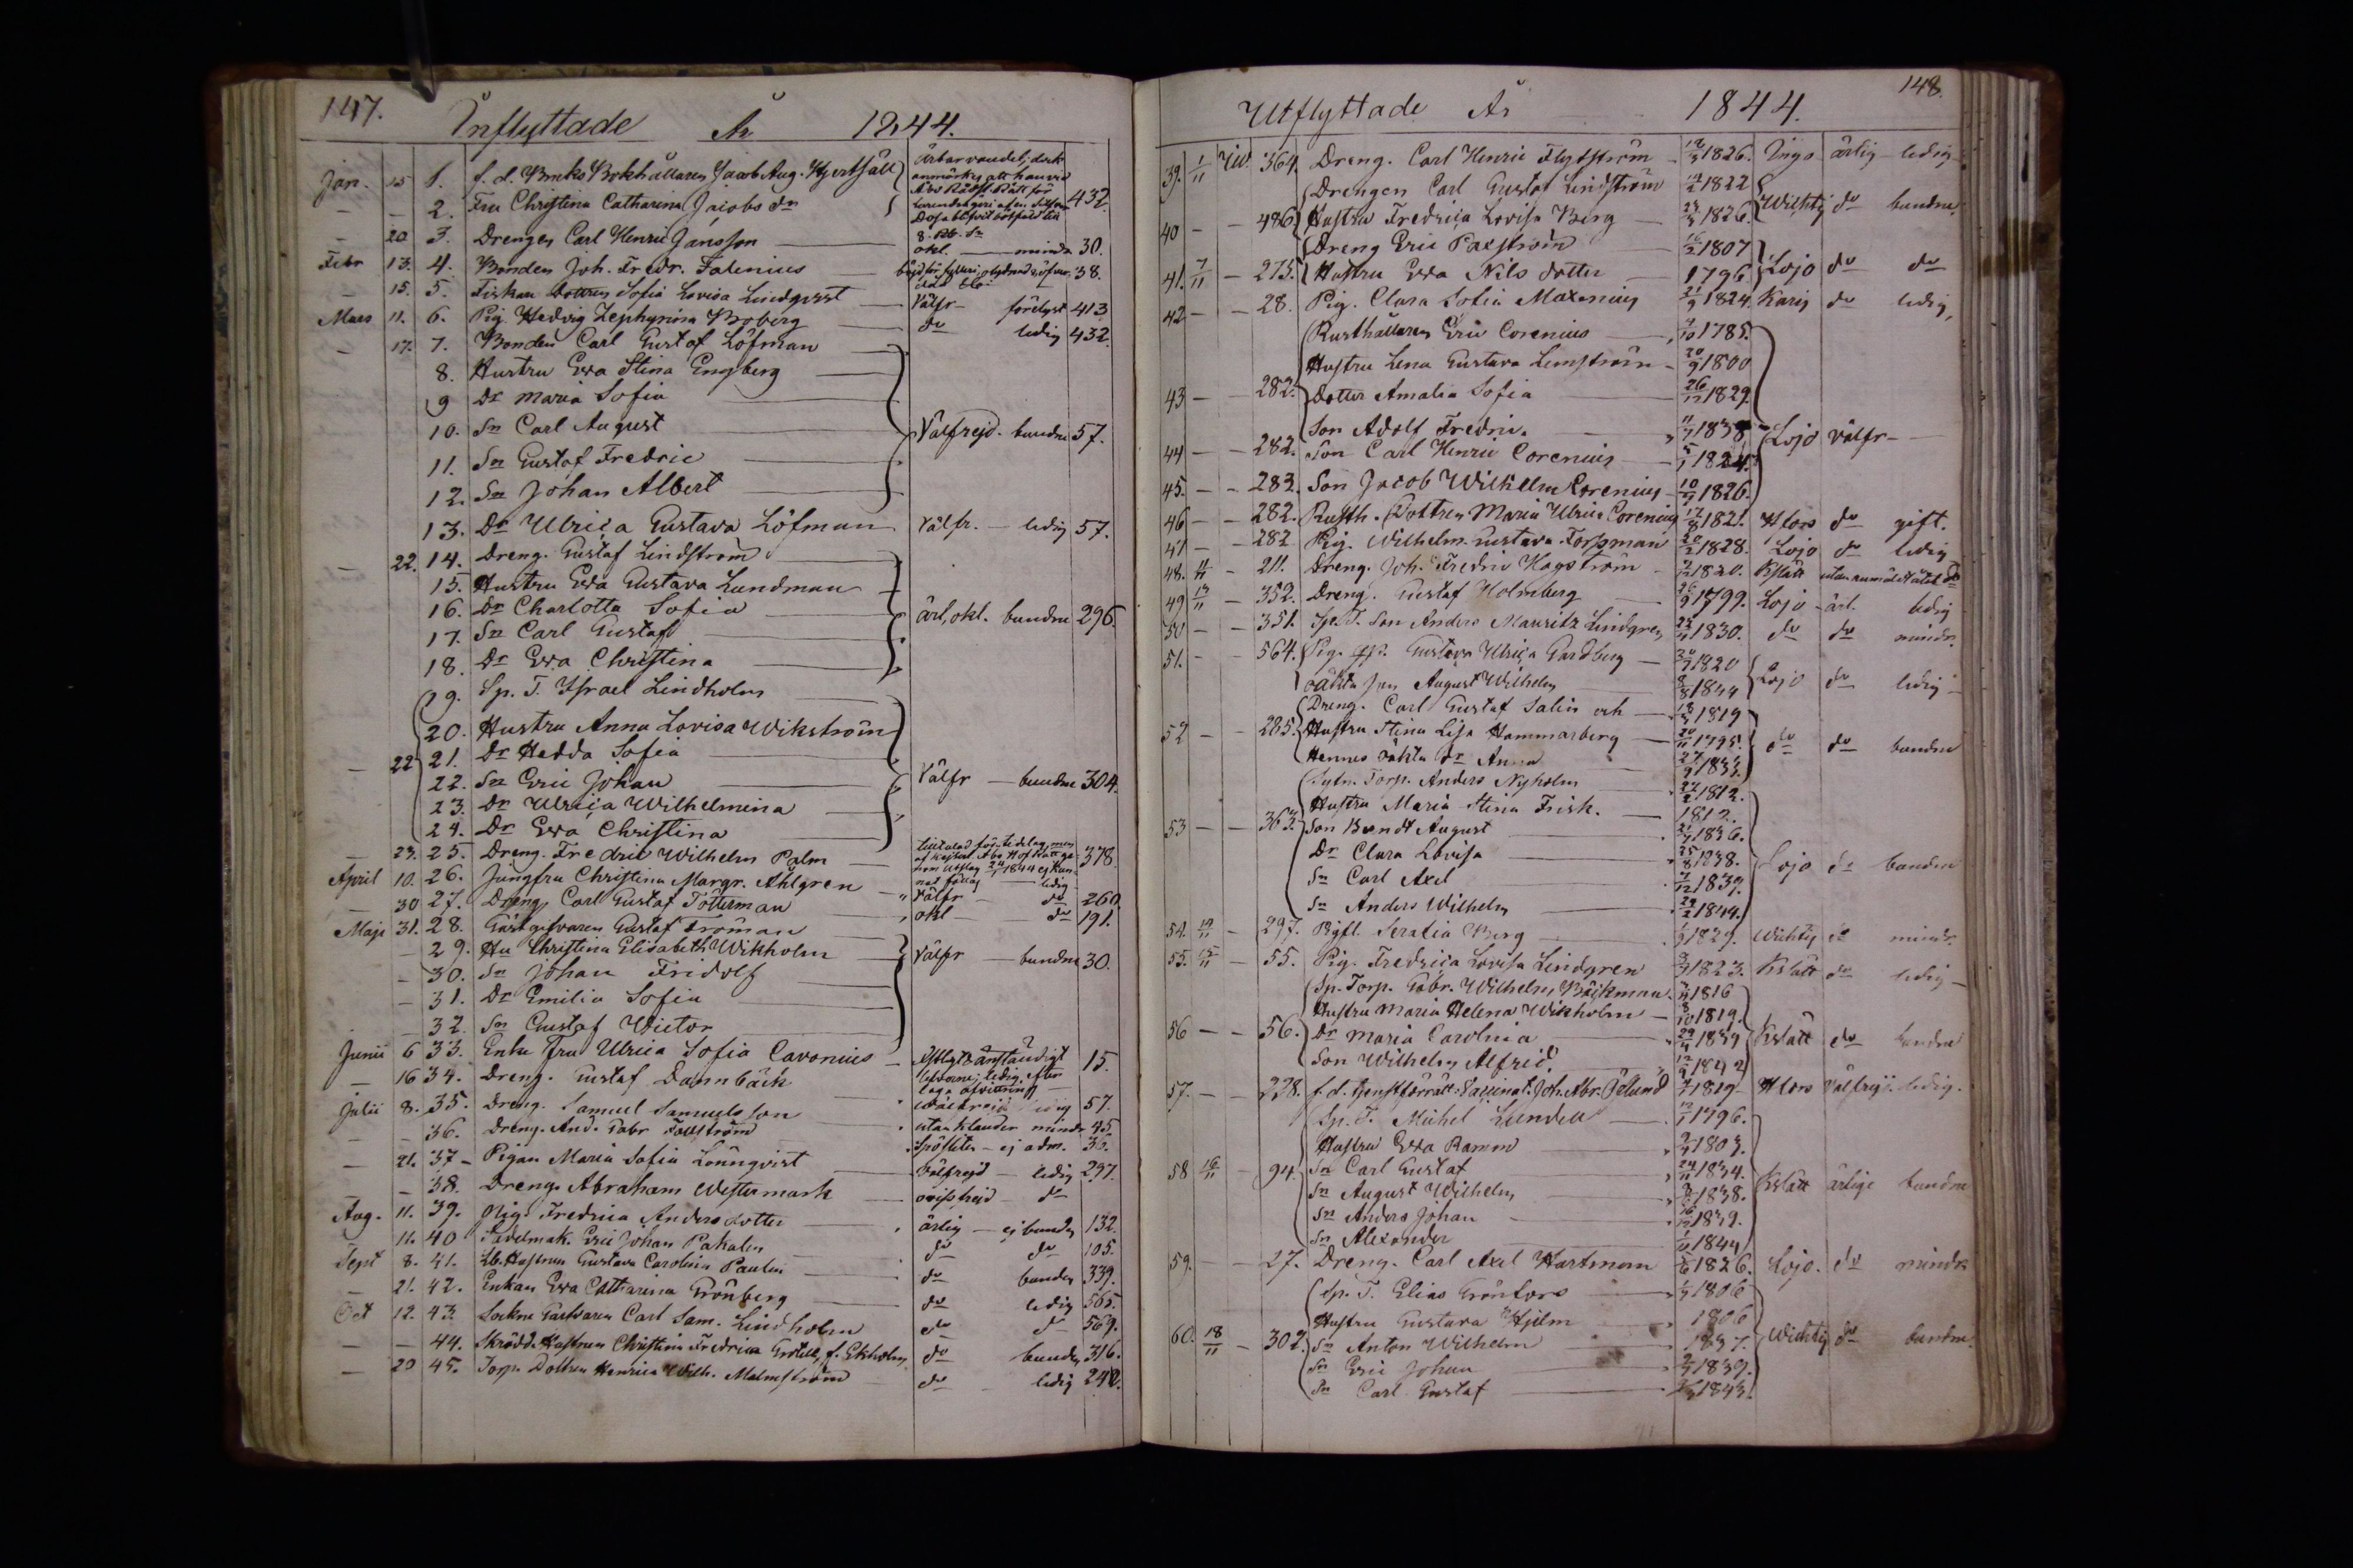 147.
Inflyttade År 1844.
Jan. 15 1. f. d. Bruks Bokhållaren Jacob Aug. Hjertfält
Ärbar vandel, dock
anmärkes att han vid
432.
— — 2. Fru Christina Catharina Jacobs dr
— 20 3. Drengen Carl Henric Jansson — okl. — mindr. 30.
Febr 13. 4. Bonden Joh. Fredr. Falenius — 38.
— 15. 5. Fiskare Dottren Sofia Lovisa Lindqvist — Välfr — förelyst 413
Mars 11. 6. Pig. Hedvig Zephyrina Boberg — do ledig 432.
— 17. 7. Bonden Carl Gustaf Löfman
8. Hustru Eva Stina Engberg
9 Dr Maria Sofia
10. Sn Carl August — Välfrejd. bundne 57.
11. Sn Gustaf Fredric
12. Sn Johan Albert
13. Dr Ulrica Gustava Löfman Välfr. — ledig 57.
— 22. 14. Dreng. Gustaf Lindström
15. Hustru Eva Gustava Lundman
16. Dr Charlotta Sofia — ärl, okl. bundne 296.
17. Sn Carl Gustaf
18. Dr Eva Christina
19. Sp. T. Israel Lindholm
20. Hustru Anna Lovisa Wikström
— 22 21. Dr Hedda Sofia
22. Sn Eric Johan — Välfr — bundne 304.
23. Dr Ulrica Wilhelmina
24. Dr Eva Christina
— 23. 25. Dreng. Fredric Wilhelm Palm — 378
April 10. 26. Jungfru Christina Margr. Ahlgren — Välfr do 260
— 30 27. Dreng Carl Gustaf Tötterman — okl — do 191.
Maji 31. 28. Gästgifvaren Gustaf Froman
— 29. Hu Christina Elisabeth Wikholm — Välfr — bundne 30.
— 30. Sn Johan Fridolf
— 31. Dr Emilia Sofia
— 32. Sn Gustaf Victor
Junii 6 33. Enke Fru Ulrica Sofia Cavonius — 15.
— 16 34. Dreng. Gustaf Dannbäck
Julii 8. 35. Dreng. Samuel Samuelsson — ledig 57.
— — 36. Dreng. And. Gabr Fallström — utan klander mindr 45
— 21. 37 — Pigan Maria Sofia Lönnqvist — ej adm. 36.
— 38. Dreng. Abraham Westermark — Välfrejd — ledig 297.
Aug. 11. 39. Pig. Fredrica Andersdotter — ärlig — ej bunden 132.
11. 40 Eric Johan Pakalen — do do 105.
Sept 8. 41. Hustrun Gustava Carolina Paulin — do bunden 339.
— 21. 42. Enkan Eva Catharina Grönberg — do ledig 565.
Oct 12. 43. Carl Sam. Lindholm — do do 569.
— — 44. Skrädd. Hustrun Christina Fredrica Grotell, f. Ekholm do bunden 316.
— 20 45. Torp. Dottren Henrica Wilh. Malmström do — ledig 242.
148.
Utflyttade År 1844.
39. 1/11 364. Dreng. Carl Henric Flytström 1826. Ingo ärlig — ledig
Drengen Carl Gustaf Lindström 1822
40 — — 486 Hustru Fredrica Lovisa Berg — 1826. Wichtis do bundne.
Dreng Eric Palström 1807
41. 7/11 — 275. Hustru Eva Nils dotter 1796 Lojo do do
42 — — 28. Pig. Clara Sofia Moxenius 1824. Karis do ledig,
Rusthållaren Eric Corenius — 1785.
Hustru Lena Gustava Lemström — 1800
43 — — 282. Dotter Amalia Sofia 26/12 1829.
Son Adolf Fredric. 1838
44 — — 282. Son Carl Henric Corenius — 1824. Lojo välfr —
45. — — 282. Son Jacob Wilhelm Corenius — 1826.
46 — — 282. Rusth. Dottren Maria Ulrica Corenius 1821. Hfors do gift.
47 — — 282 Pig. Wilhelm. Gustava Forsman 1828. Lojo do ledig
48. — 211. Dreng. Joh. Fredric Hagström — 1820. Kslätt
49 13/11 — 352. Dreng. Gustaf Holmberg 1799. Lojo — ärl. ledig
50 — — 351. Sp. T. Son Anders Mauritz Lindgren 1830. do do mindr.
51. — 564. Pig. Gustava Ulrica Gardberg — 1820
oäkta Son August Wilhelm 1844 Lojo do ledig —
Dreng. Carl Gustaf Salin och — 1819
52 — — 285. Hustru Stina Lisa Hammarberg — 1795. do do bundne
Hennes oäkta Dr Anna 1833.
Torp. Anders Nyholm 1812.
Hustru Maria Stina Frisk. — 1812.
53 — — 363. Son Berndt August 1836.
Dr Clara Lovisa 1838. Lojo do bundne
Sn Carl Axel 1839.
Sn Anders Wilhelm 1844.
54. — 297. Serafia Berg 1829. Wichtis do mindr.
55. 15/11 — 55. Pig. Fredrica Lovisa Lindgren 1823. Kslätt do ledig —
Sp. Torp. Gabr. Wilhelm Bäckman. 1816
Hustru Maria Helena Wikholm — 1819.
56 — — 56. Dr Maria Carolina 1839 Kslätt do bundne
Son Wilhelm Alfrid. 1842
57. — — 228. Joh. Abr. Öhlund 1819 — Hfors Välfrejd. ledig.
Sp. T. Michel Lundell — 1796.
Hustru Eva Ramm 1803.
58 — 94. Sn Carl Gustaf 1834.
Sn August Wilhelm 1838. Kslätt ärlige bundne
Sn Anders Johan 1839.
Sn Alexander 1844
59. — 27. Dreng. Carl Axel Hartman 1826. Lojo. do mindr
Sp. T. Elias Grönfors 1806
Hustru Gustava Hjelm 1806
60. 18/11 — 302. Sn Anton Wilhelm 1837. Wichtis do bundne.
Sn Eric Johan 1839.
Sn Carl Gustaf 1843.